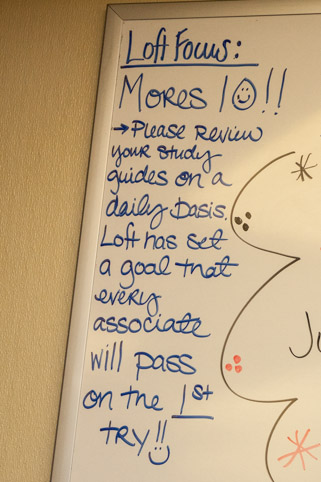 Loft Focus:
Mores 10!!
→Please Review
your study
guides on a
daily basis.
Loft has set
a goal that
every
associate
will pass
on the 1st
try!!
Ju